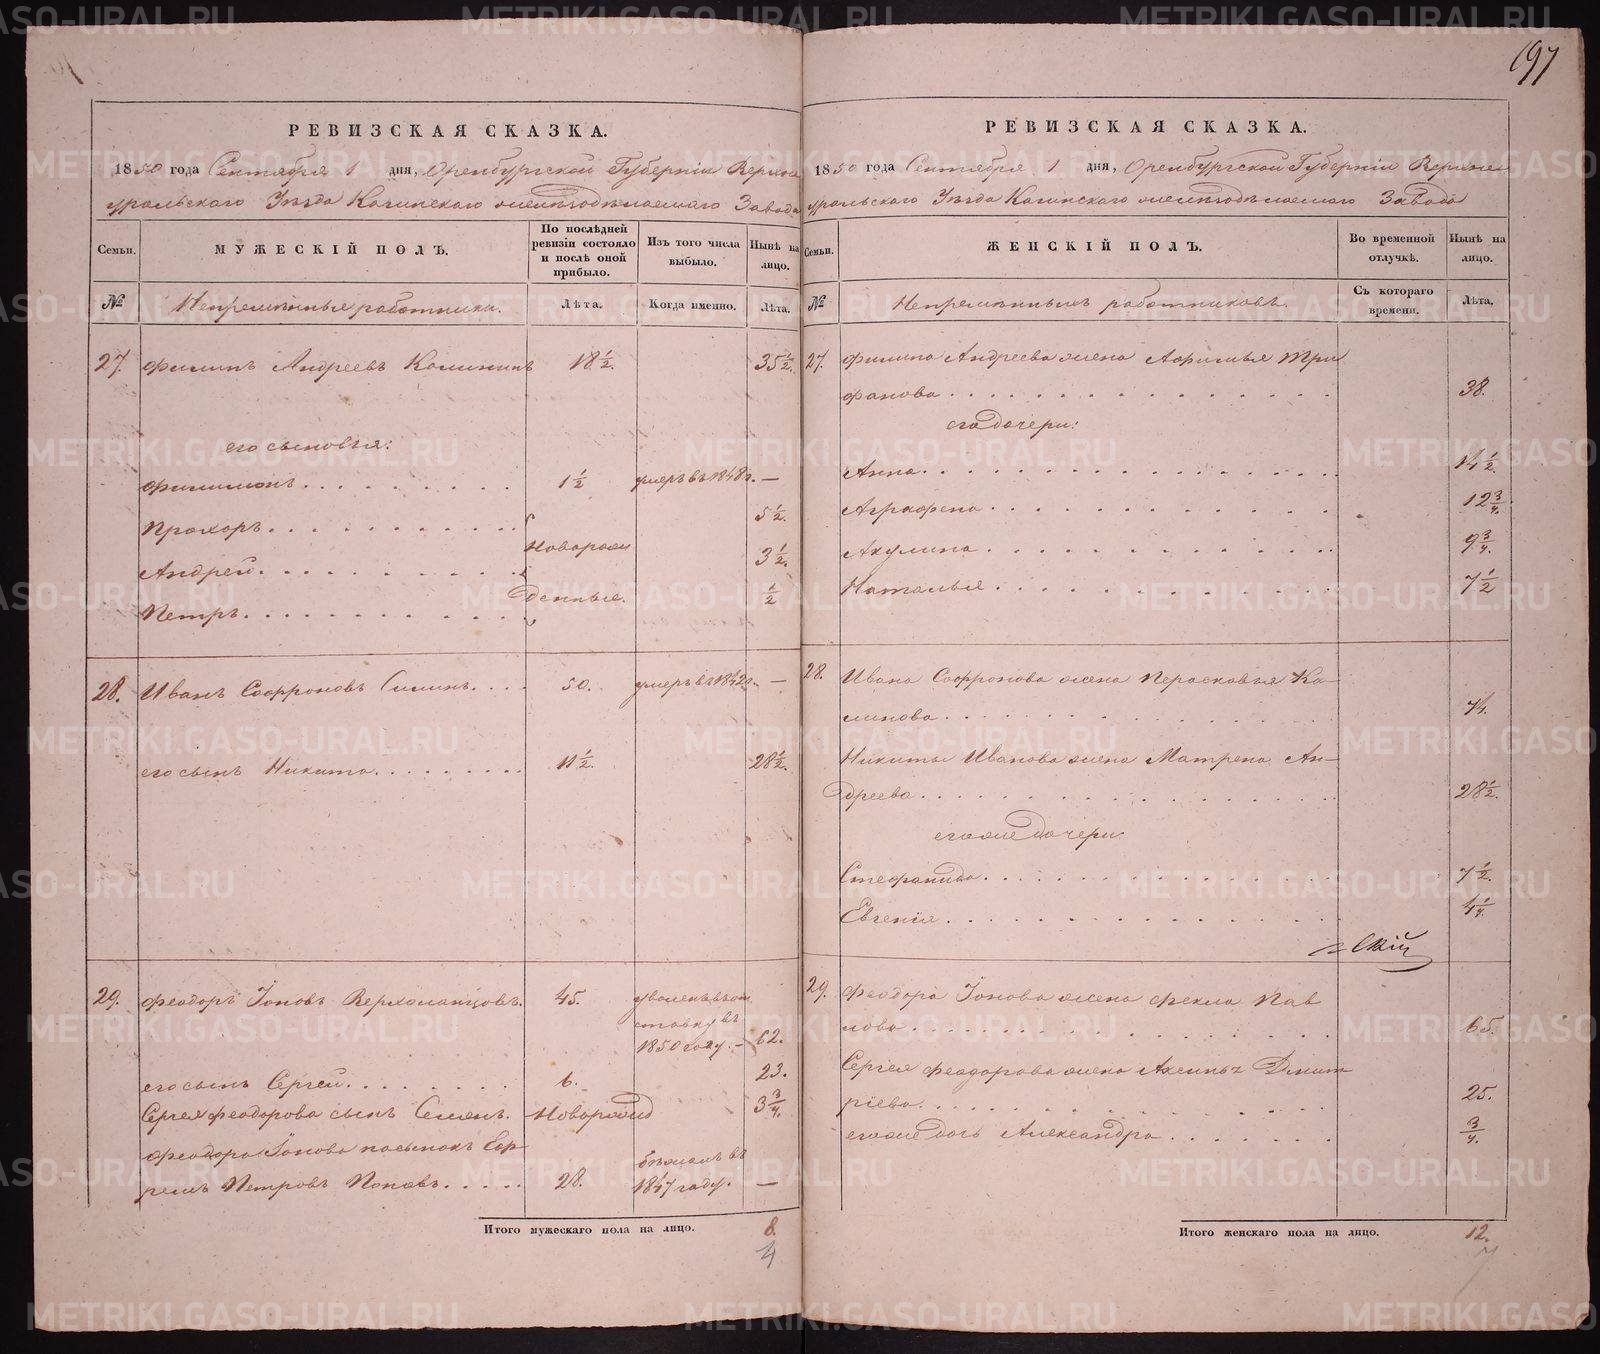 197
РЕВИЗСКАЯ СКАЗКА.
1850 года Сентября 1 дня, Оренбургской Губерніи Верхне
уральскаго Уѣзда Кагинскаго желѣзодѣлаемаго Завода
Семьи.
МУЖЕСКІЙ ПОЛЪ.
По послѣдней
ревизіи состояло
и послѣ оной
прибыло.
Изъ того числа
выбыло.
Нынѣ на
лицо.
№
Непремѣнные работники.
Лѣта.
Когда именно.
Лѣта.
27. Филипъ Андреевъ Калининъ 18 1/2. 35 1/2.
его сыновья:
Филимонъ 1 1/2 умеръ въ 1848 г. —
Прохоръ 5 1/2.
Новорож
Андрей. 3 1/2.
денные.
Петръ 1/2
28. Иванъ Софроновъ Силинъ. 50. умеръ въ 1842 г. —
его сынъ Никита 11 1/2. 28 1/2.
29. Феодоръ Іоновъ Верхоланцовъ. 45. уволенъ въ от
ставку въ
1850 году. — 62.
его сынъ Сергей 6. 23.
Сергея Феодорова сынъ Семенъ. Новорожд 3 3/4.
Феодора Іонова пасынокъ Еф-
ремъ Петровъ Поповъ 28. бѣжалъ въ
1847 году. —
Итого мужескаго пола на лицо. 8.
4
РЕВИЗСКАЯ СКАЗКА.
1850 года Сентября 1 дня, Оренбургской Губерніи Верхне
уральскаго Уѣзда Кагинскаго желѣзодѣлаемаго Завода
Семьи.
ЖЕНСКІЙ ПОЛЪ.
Во временной
отлучкѣ.
Нынѣ на
лицо.
№
Непремѣнныхъ работниковъ.
Съ котораго
времени.
Лѣта.
27. Филипа Андреева жена Афимья Три
фанова 38.
его дочери:
Анна 14 1/2.
Аграфена 12 3/4.
Акулина 9 3/4.
Наталья 7 1/2
28. Ивана Софронова жена Перасковья Ка-
линова 74.
Никиты Иванова жена Матрена Ан-
дреева 28 1/2.
его же дочери:
Стефанида 7 1/2.
Евгенія 4 1/4.
скій
29. Феодора Іонова жена Фекла Пав
лова 65.
Сергея Феодорова жена Аксинья Дмит
ріева 25.
его же дочь Александра 3/4.
Итого женскаго пола на лицо. 12.
7
METRIKI.GASO-URAL.RU